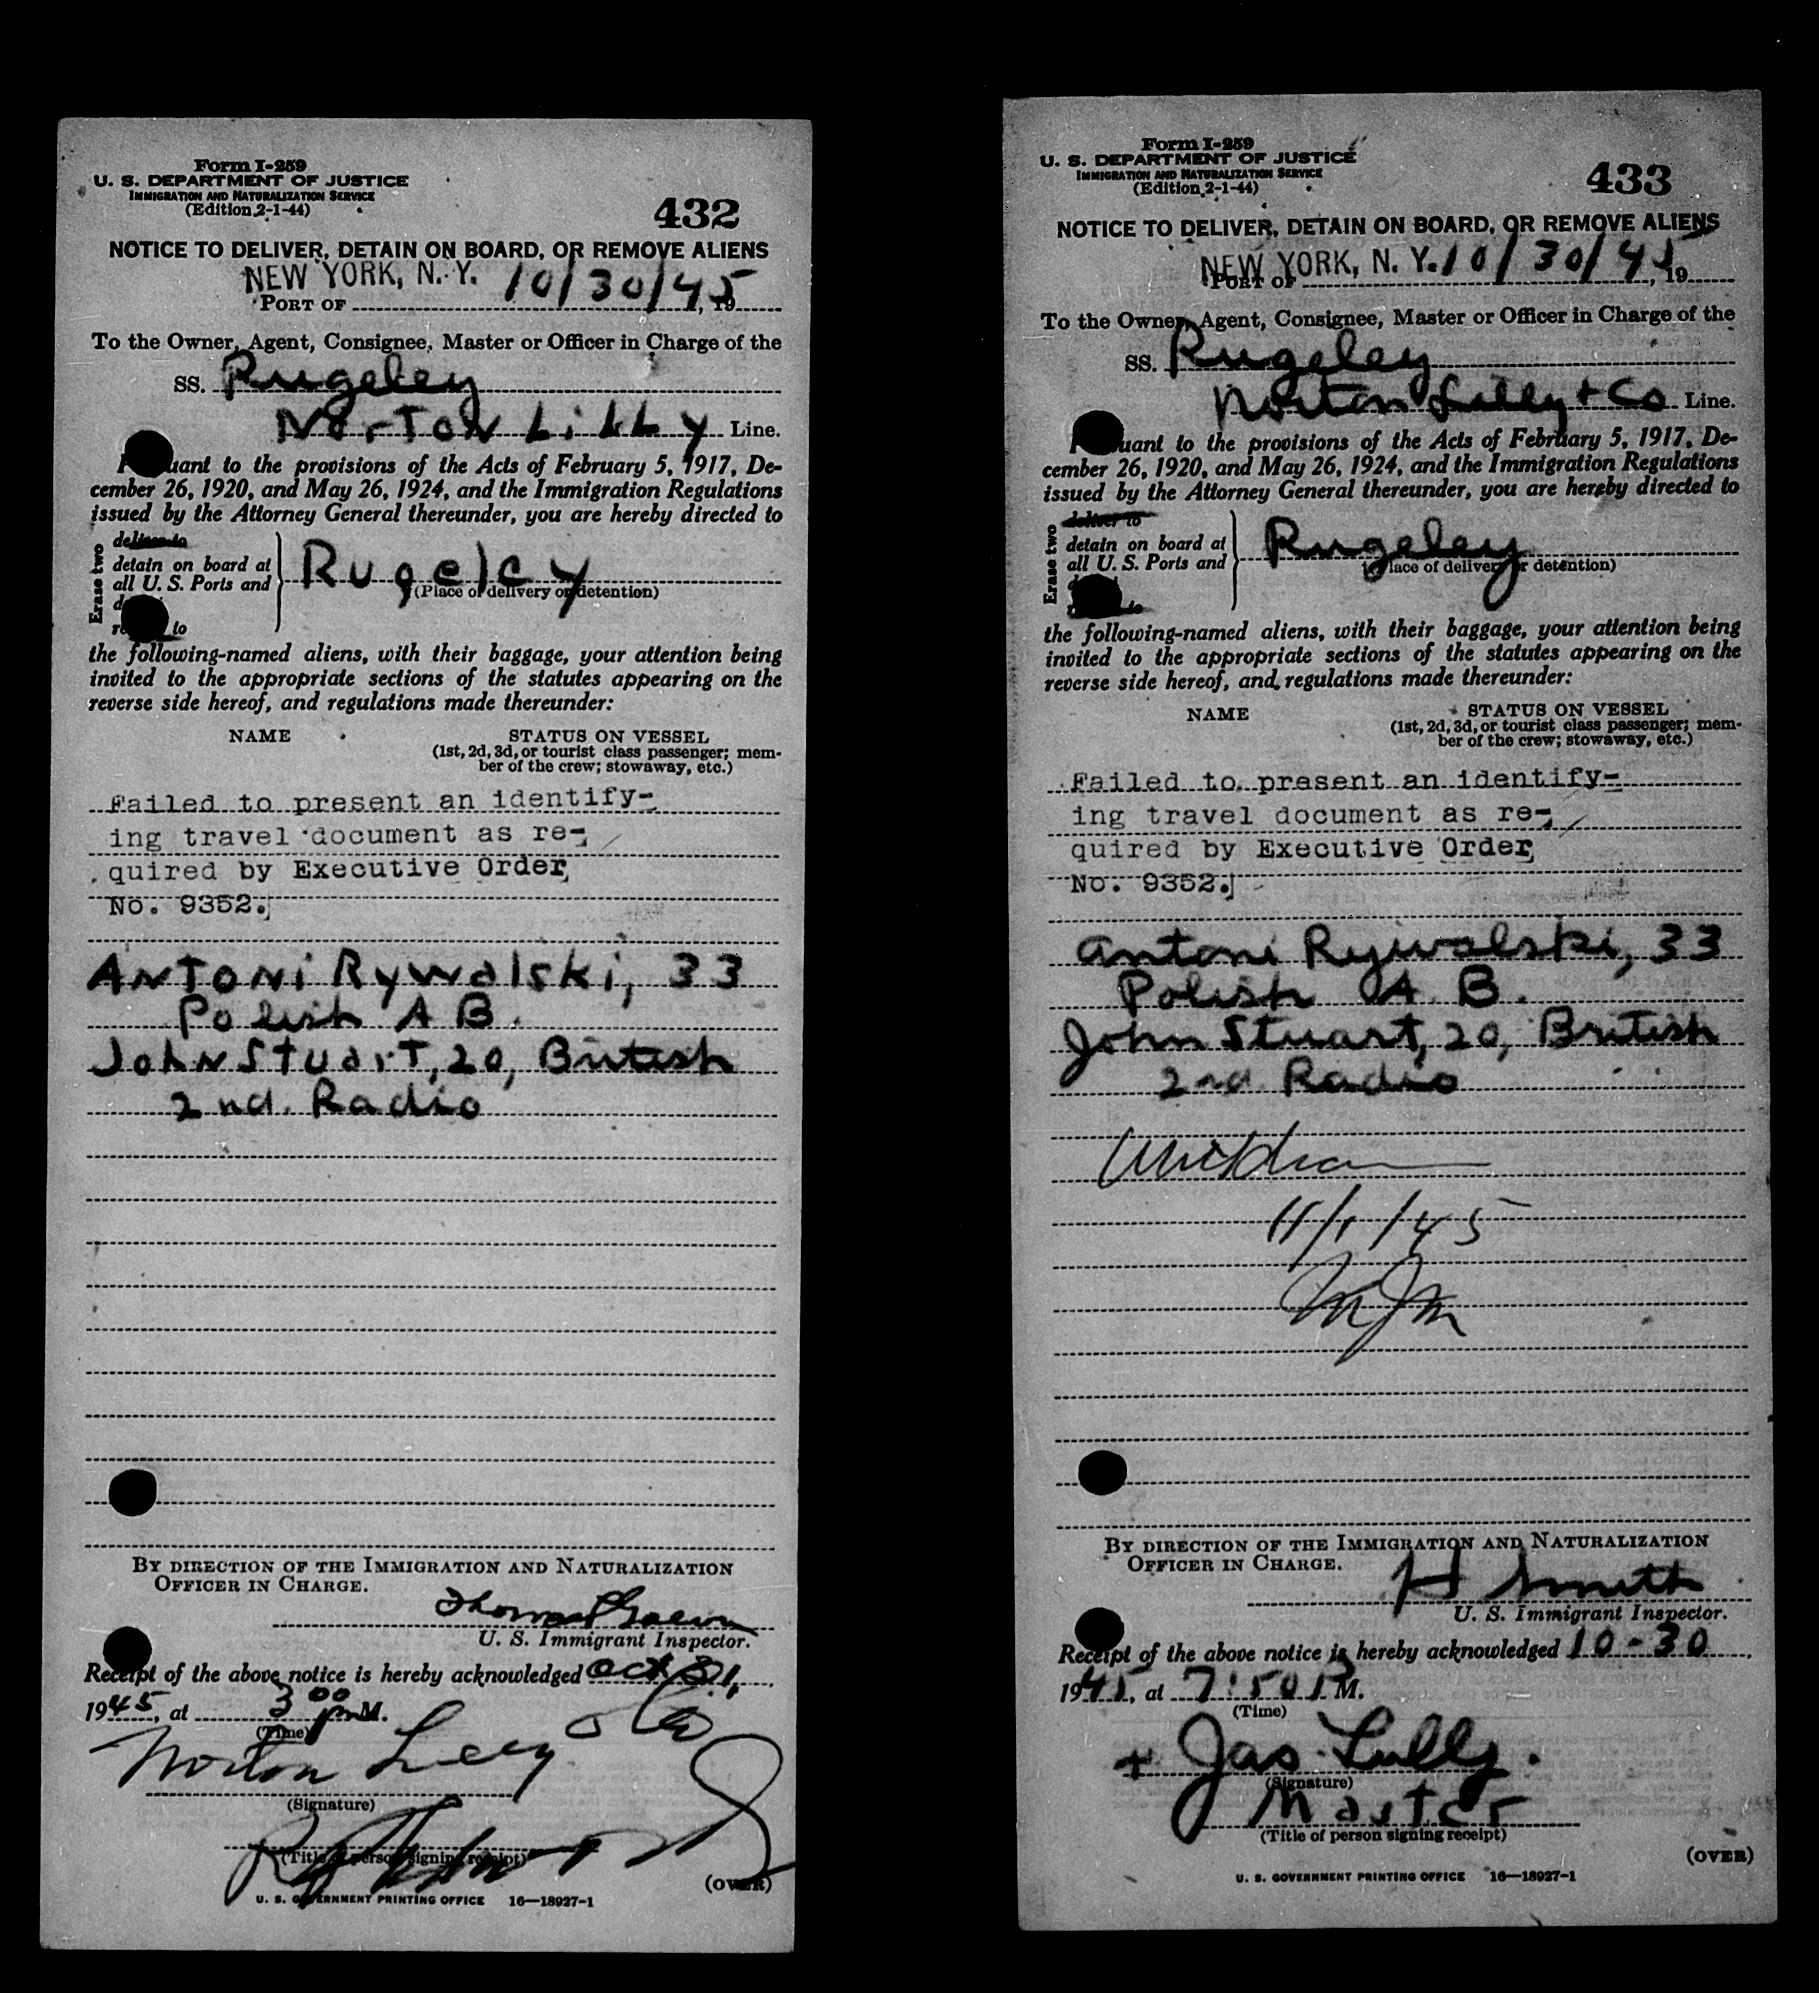 Form I-259
U. S. DEPARTMENT OF JUSTICE
IMMIGRATION AND NATURALIZATION SERVICE
(Edition 2-1-44)
432
NOTICE TO DELIVER, DETAIN ON BOARD, OR REMOVE ALIENS
NEW YORK, N. Y. 10/30/45
PORT OF , 19
To the Owner, Agent, Consignee, Master or Officer in Charge of the
SS. Rugeley
Norton Lilly Line.
uant to the provisions of the Acts of February 5, 1917, De-
cember 26, 1920, and May 26, 1924, and the Immigration Regulations
issued by the Attorney General thereunder, you are hereby directed to
Erase two
deliver to
detain on board at
all U. S. Ports and
to
Rugeley
(Place of delivery or detention)
the following-named aliens, with their baggage, your attention being
invited to the appropriate sections of the statutes appearing on the
reverse side hereof, and regulations made thereunder:
NAME STATUS ON VESSEL
(1st, 2d, 3d, or tourist class passenger; mem-
ber of the crew; stowaway, etc.)
Failed to present an identify-
ing travel document as re-
quired by Executive Order
No. 9352.
Antoni Rywalski, 33
Polish A B.
John Stuart, 20, British
2nd. Radio
BY DIRECTION OF THE IMMIGRATION AND NATURALIZATION
OFFICER IN CHARGE.
Thomas
U. S. Immigrant Inspector.
Receipt of the above notice is hereby acknowledged Oct 31,
1945, at 3 00 pm M.
(Time)
Norton Lilly
(Signature)
(Title of person signing receipt)
(OVER)
U. S. GOVERNMENT PRINTING OFFICE 16—18927-1
Form I-259
U. S. DEPARTMENT OF JUSTICE
IMMIGRATION AND NATURALIZATION SERVICE
(Edition 2-1-44)
433
NOTICE TO DELIVER, DETAIN ON BOARD, OR REMOVE ALIENS
NEW YORK, N. Y. 10/30/45
PORT OF , 19
To the Owner, Agent, Consignee, Master or Officer in Charge of the
SS. Rugeley
Norton Lilly + Co Line.
uant to the provisions of the Acts of February 5, 1917, De-
cember 26, 1920, and May 26, 1924, and the Immigration Regulations
issued by the Attorney General thereunder, you are hereby directed to
Erase two
deliver to
detain on board at
all U. S. Ports and
to
Rugeley
(Place of delivery or detention)
the following-named aliens, with their baggage, your attention being
invited to the appropriate sections of the statutes appearing on the
reverse side hereof, and regulations made thereunder:
NAME STATUS ON VESSEL
(1st, 2d, 3d, or tourist class passenger; mem-
ber of the crew; stowaway, etc.)
Failed to present an identify-
ing travel document as re-
quired by Executive Order
No. 9352.
Antoni Rywalski, 33
Polish A B.
John Stuart, 20, British
2nd. Radio
11/1/45
BY DIRECTION OF THE IMMIGRATION AND NATURALIZATION
OFFICER IN CHARGE.
H Smith
U. S. Immigrant Inspector.
Receipt of the above notice is hereby acknowledged 10-30
1945, at 7:50 P M.
(Time)
+ Jas. Lilly.
(Signature)
Master
(Title of person signing receipt)
(OVER)
U. S. GOVERNMENT PRINTING OFFICE 16—18927-1